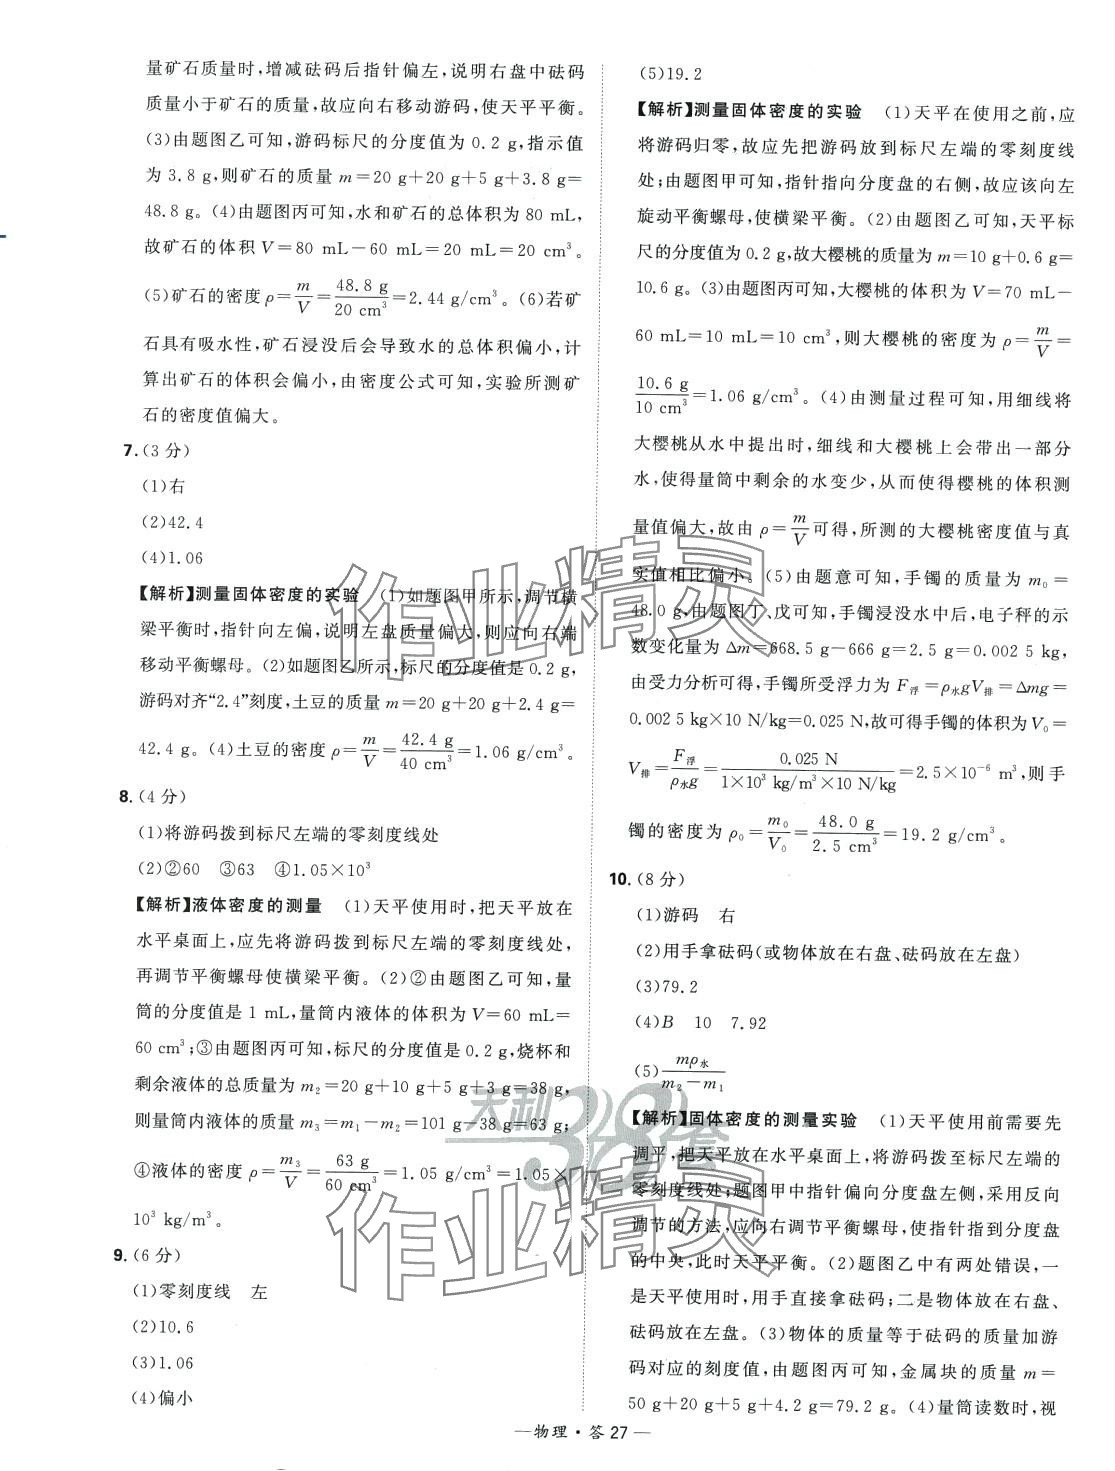 量矿石质量时,增减砝码后指针偏左,说明右盘中砝码
质量小于矿石的质量,故应向右移动游码,使天平平衡。
(3)由题图乙可知,游码标尺的分度值为 0.2 g,指示值
为 3.8 g,则矿石的质量 m=20 g+20 g+5 g+3.8 g=
48.8 g。(4)由题图丙可知,水和矿石的总体积为 80 mL,
故矿石的体积 V=80 mL-60 mL=20 mL=20 cm³。
(5)矿石的密度 ρ=m/V=48.8 g/20 cm³=2.44 g/cm³。(6)若矿
石具有吸水性,矿石浸没后会导致水的总体积偏小,计
算出矿石的体积会偏小,由密度公式可知,实验所测矿
石的密度值偏大。
7.(3 分)
(1)右
(2)42.4
(4)1.06
【解析】测量固体密度的实验 (1)如题图甲所示,调节横
梁平衡时,指针向左偏,说明左盘质量偏大,则应向右端
移动平衡螺母。(2)如题图乙所示,标尺的分度值是 0.2 g,
游码对齐“2.4”刻度,土豆的质量 m=20 g+20 g+2.4 g=
42.4 g。(4)土豆的密度 ρ=m/V=42.4 g/40 cm³=1.06 g/cm³。
8.(4 分)
(1)将游码拨到标尺左端的零刻度线处
(2)②60 ③63 ④1.05×10³
【解析】液体密度的测量 (1)天平使用时,把天平放在
水平桌面上,应先将游码拨到标尺左端的零刻度线处,
再调节平衡螺母使横梁平衡。(2)②由题图乙可知,量
筒的分度值是 1 mL,量筒内液体的体积为 V=60 mL=
60 cm³;③由题图丙可知,标尺的分度值是 0.2 g,烧杯和
剩余液体的总质量为 m₂=20 g+10 g+5 g+3 g=38 g,
则量筒内液体的质量 m₃=m₁-m₂=101 g-38 g=63 g;
④液体的密度 ρ=m₃/V=63 g/60 cm³=1.05 g/cm³=1.05×
10³ kg/m³。
9.(6 分)
(1)零刻度线 左
(2)10.6
(3)1.06
(4)偏小
(5)19.2
【解析】测量固体密度的实验 (1)天平在使用之前,应
将游码归零,故应先把游码放到标尺左端的零刻度线
处;由题图甲可知,指针指向分度盘的右侧,故应该向左
旋动平衡螺母,使横梁平衡。(2)由题图乙可知,天平标
尺的分度值为 0.2 g,故大樱桃的质量为 m=10 g+0.6 g=
10.6 g。(3)由题图丙可知,大樱桃的体积为 V=70 mL-
60 mL=10 mL=10 cm³,则大樱桃的密度为 ρ=m/V=
10.6 g/10 cm³=1.06 g/cm³。(4)由测量过程可知,用细线将
大樱桃从水中提出时,细线和大樱桃上会带出一部分
水,使得量筒中剩余的水变少,从而使得樱桃的体积测
量值偏大,故由 ρ=m/V可得,所测的大樱桃密度值与真
实值相比偏小。(5)由题意可知,手镯的质量为 m₀=
48.0 g,由题图丁、戊可知,手镯浸没水中后,电子秤的示
数变化量为 Δm=668.5 g-666 g=2.5 g=0.002 5 kg,
由受力分析可得,手镯所受浮力为 F浮=ρ水gV排=Δmg=
0.002 5 kg×10 N/kg=0.025 N,故可得手镯的体积为 V₀=
V排=F浮/ρ水g=0.025 N/1×10³ kg/m³×10 N/kg=2.5×10⁻⁶ m³,则手
镯的密度为 ρ₀=m₀/V₀=48.0 g/2.5 cm³=19.2 g/cm³。
10.(8 分)
(1)游码 右
(2)用手拿砝码(或物体放在右盘、砝码放在左盘)
(3)79.2
(4)B 10 7.92
(5)mρ水/m₂-m₁
【解析】固体密度的测量实验 (1)天平使用前需要先
调平,把天平放在水平桌面上,将游码拨至标尺左端的
零刻度线处;题图甲中指针偏向分度盘左侧,采用反向
调节的方法,应向右调节平衡螺母,使指针指到分度盘
的中央,此时天平平衡。(2)题图乙中有两处错误,一
是天平使用时,用手直接拿砝码;二是物体放在右盘、
砝码放在左盘。(3)物体的质量等于砝码的质量加游
码对应的刻度值,由题图丙可知,金属块的质量 m=
50 g+20 g+5 g+4.2 g=79.2 g。(4)量筒读数时,视
—物理·答 27—
作业精灵
天利38套
作业精灵